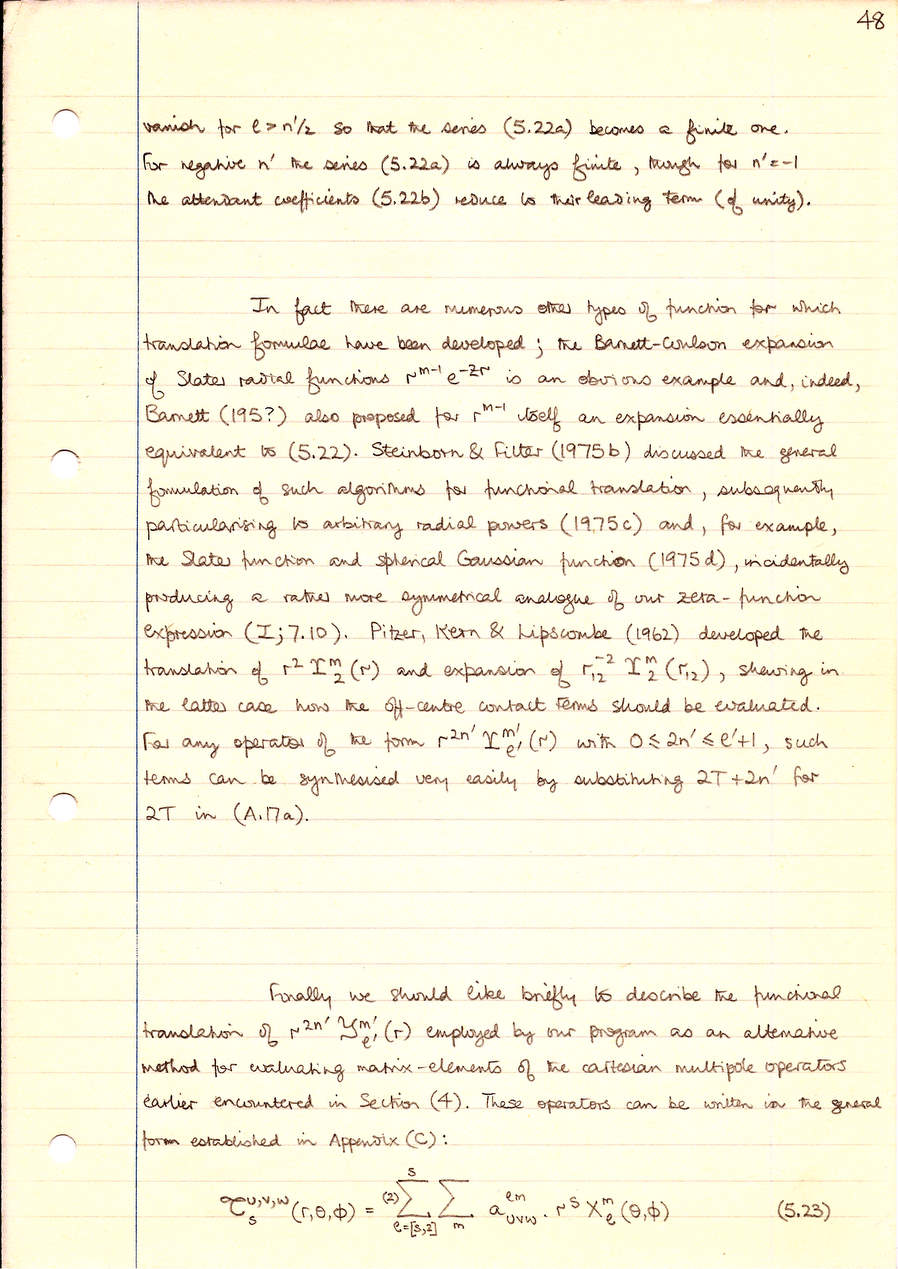 48
vanish for ℓ > n'/2 so that the series (5.22a) becomes a finite one.
For negative n' the series (5.22a) is always finite, though for n' = -1
the attendant coefficients (5.22b) reduce to their leading term (of unity).
In fact there are numerous other types of function for which
translation formulae have been developed; the Barnett-Coulson expansion
of Slater radial functions r^{m-1} e^{-Zr} is an obvious example and, indeed,
Barnett (195?) also proposed for r^{m-1} itself an expansion essentially
equivalent to (5.22). Steinborn & Filter (1975b) discussed the general
formulation of such algorithms for functional translation, subsequently
particularising to arbitrary radial powers (1975c) and, for example,
the Slater function and spherical Gaussian function (1975d), incidentally
producing a rather more symmetrical analogue of our zeta-function
expression (I; 7.10). Pitzer, Kern & Lipscombe (1962) developed the
translation of r^2 Y_2^m (r) and expansion of r_{12}^{-2} Y_2^m (r_{12}), shewing in
the latter case how the off-centre contact terms should be evaluated.
For any operator of the form r^{2n'} Y_{ℓ'}^{m'} (r) with 0 ≤ 2n' ≤ ℓ'+1, such
terms can be synthesised very easily by substituting 2T + 2n' for
2T in (A.17a).
Finally we should like briefly to describe the functional
translation of r^{2n'} 𝒴_{ℓ'}^{m'} (r) employed by our program as an alternative
method for evaluating matrix-elements of the cartesian multipole operators
earlier encountered in Section (4). These operators can be written in the general
form established in Appendix (C):
𝒯_s^{u,v,w} (r,θ,φ) = ^{(2)}∑_{ℓ=[s,2]}^{s} ∑_m a_{uvw}^{ℓm} . r^s X_ℓ^m (θ,φ) (5.23)